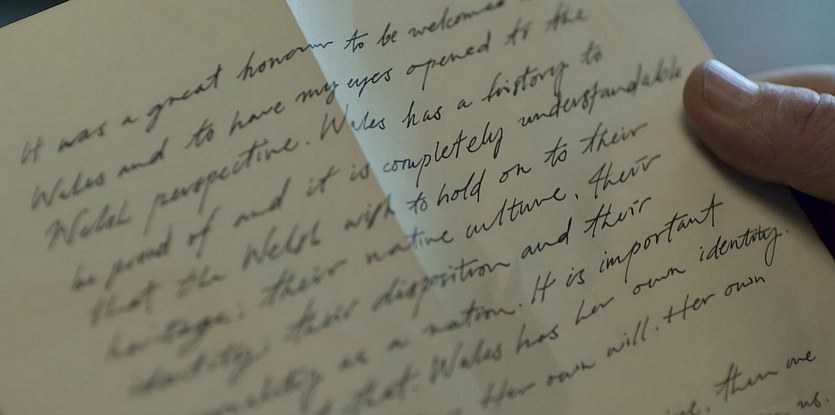 It was a great honour to be welcomed
Wales and to have my eyes opened to the
Welsh perspective. Wales has a history to
be proud of and it is completely understandable
that the Welsh wish to hold on to their
heritage; their native culture, their
identity; their disposition and their
personality as a nation. It is important
that. Wales has her own identity.
Her own will. Her own
then we
us.